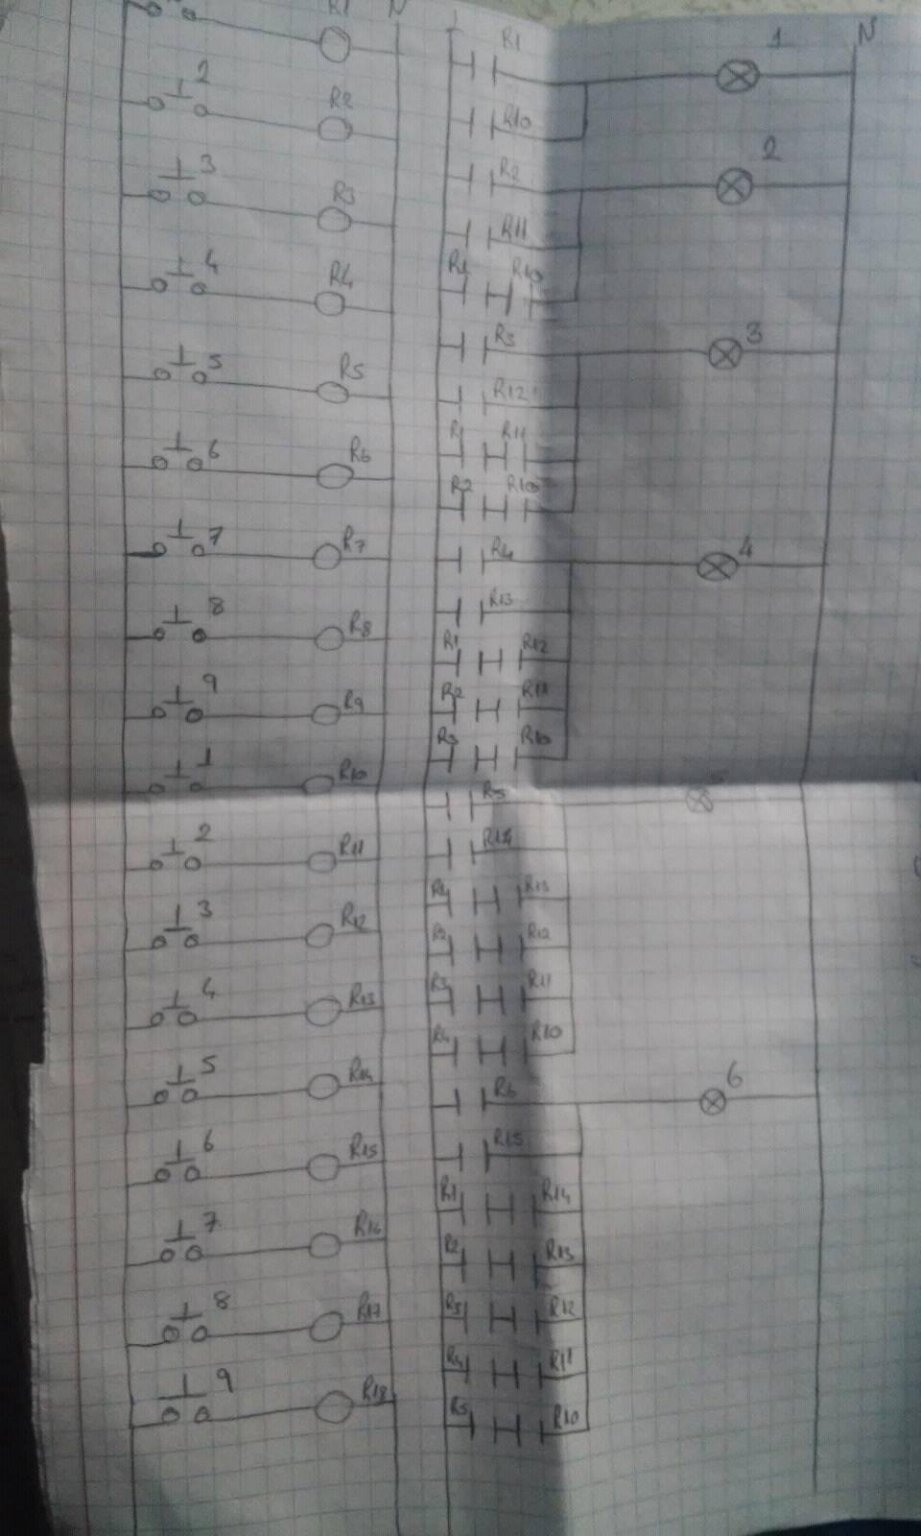 R1 N
2 R2
3 R3
4 R4
5 R5
6 R6
7 R7
8 R8
9 R9
1 R10
2 R11
3 R12
4 R13
5 R14
6 R15
7 R16
8 R17
9 R18
R1 1 N
R10
R2 2
R11
R1 R10
R3 3
R12
R1 R11
R2 R10
R4 4
R13
R1 R12
R2 R11
R3 R10
R5 5
R14
R13
R2 R12
R3 R11
R4 R10
R6 6
R15
R1 R14
R2 R13
R3 R12
R4 R11
R5 R10